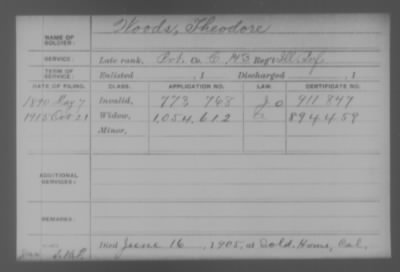 Woods, Theodore
NAME OF SOLDIER:
SERVICE: Late rank, Pvt. Co. C, Reg't Ill. Inf.
TERM OF SERVICE: Enlisted , 1 Discharged , 1
DATE OF FILING. CLASS. APPLICATION NO. LAW. CERTIFICATE NO.
1890 May 7 Invalid, 773 768 J O 911 847
1915 Widow, 1,054,612 894459
Minor,
ADDITIONAL SERVICES:
REMARKS:
Died June 16, 1905, at Sold. Home, Cal.